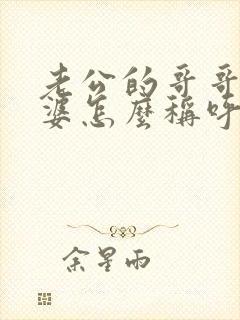 老公的哥哥
婆怎麼稱呼
余星雨